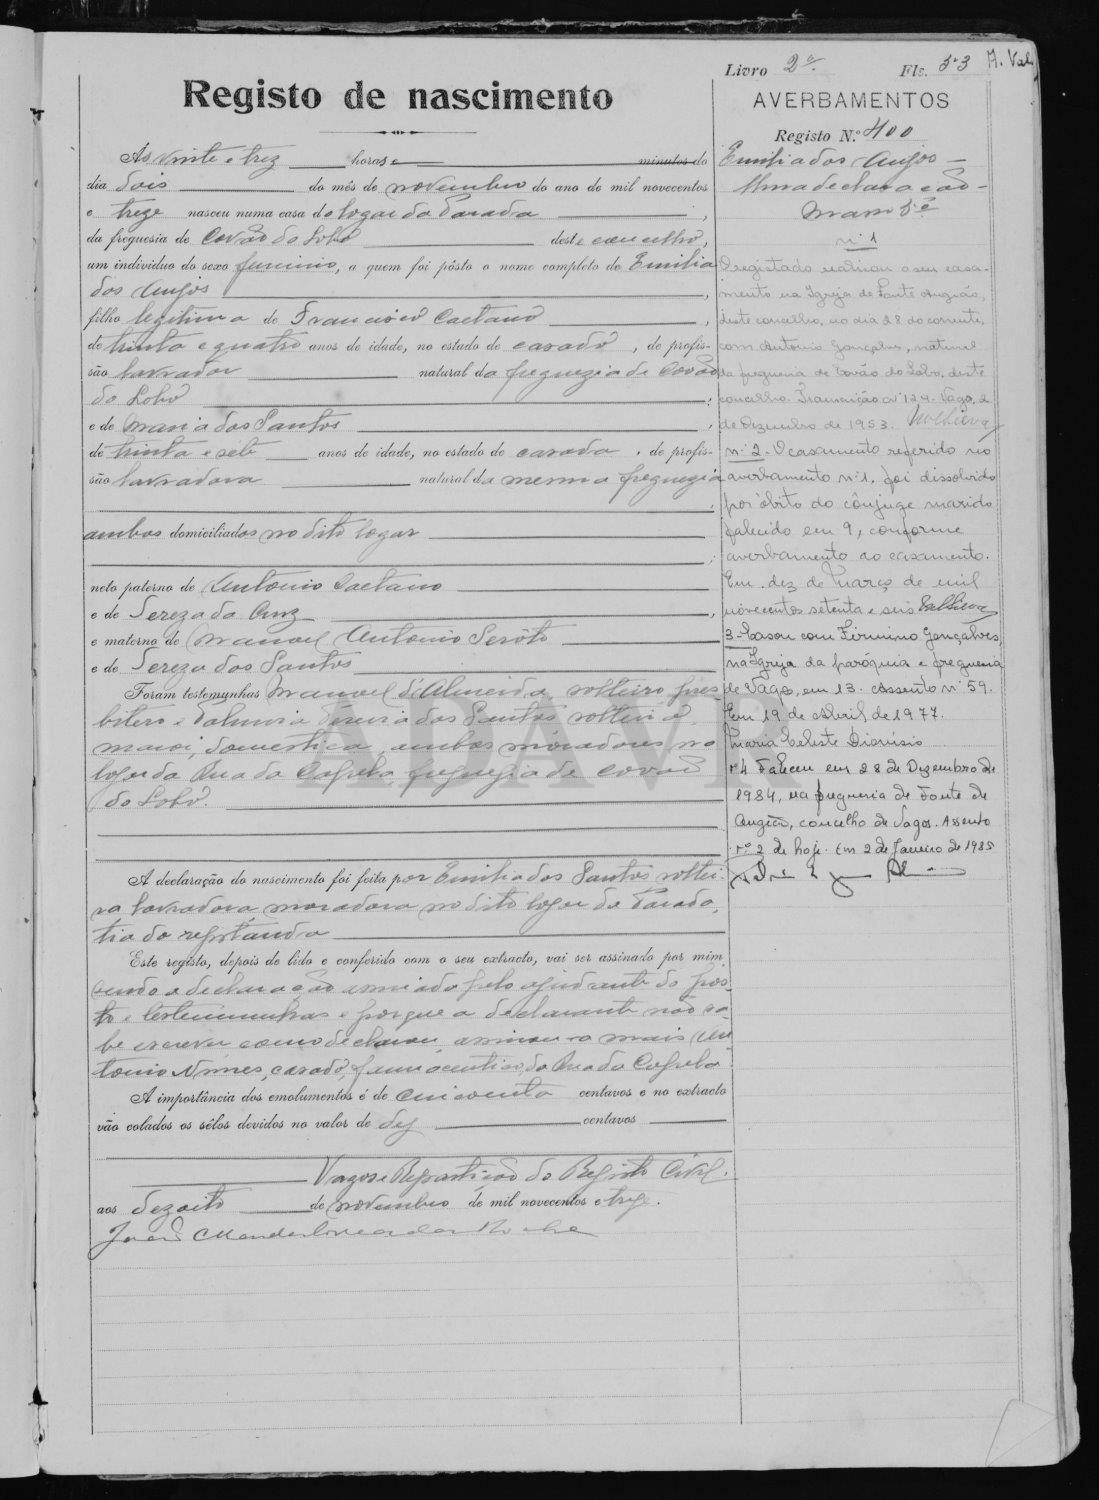 Livro 2º Fls. 53 A. Val
Registo de nascimento
AVERBAMENTOS
Registo N.º 400
Ás vinte e trez horas e minutos do
dia dois do mês de novembro do ano de mil novecentos
e treze nasceu numa casa do logar da Parada,
da freguesia de Covão do Lobo deste concelho,
um individuo do sexo feminino, a quem foi pôsto o nome completo de Emilia
dos Anjos,
filho legitima de Francisco Caetano,
de trinta e quatro anos de idade, no estado de casado, de profis-
são lavrador natural da freguezia de Covão
do Lobo;
e de Maria dos Santos,
de trinta e sete anos de idade, no estado de casada, de profis-
são lavradora natural da mesma freguezia
ambos domiciliados no dito logar
neto paterno de Antonio Caetano
e de Tereza da Cruz,
e materno de Manoel Antonio Serôto
e de Tereza dos Santos
Foram testemunhas Manoel d'Almeida, solteiro, pres-
bitero e dos Santos, solteira,
maior, domestica, ambos moradores no
logar da Rua da Capela, freguezia de Covão
do Lobo.
A declaração do nascimento foi feita por Emilia dos Santos, soltei-
ra, lavradora, moradora no dito logar da Parada,
tia do registando
Este registo, depois de lido e conferido com o seu extracto, vai ser assinado por mim
sendo a declaração enviada pelo ajudante do pos-
to e testemunhas e porque a declarante não sa-
be escrever como declarou, assinou-a mais An-
tonio Nunes, casado, farmaceutico, da Rua da Capela
A importância dos emolumentos é de cincoenta centavos e no extracto
vão colados os sêlos devidos no valor de dez centavos
Vagos e Repartição do Registo Civil.
aos dezoito de novembro de mil novecentos e treze.
Emilia dos Anjos —
Uma declaração —
Maço 5º
nº 1
O registado realizou o seu casa-
mento na Igreja de Fonte Angião,
deste concelho, no dia 28 do corrente,
com Antonio Gonçalves, natural
da freguesia de Covão do Lobo, deste
concelho. Transcrição nº 124. Vagos, 2
de Dezembro de 1953.
nº 2 - O casamento referido no
averbamento nº 1, foi dissolvido
por óbito do cônjuge marido
falecido em 9, conforme
averbamento ao casamento.
Em dez de Março de mil
novecentos setenta e seis
3 - Casou com Firmino Gonçalves,
na Igreja da paróquia e freguesia
de Vagos, em 13. Assento nº 59.
Em 19 de Abril de 1977.
Maria Celeste Dionísio
nº 4 Faleceu em 28 de Dezembro de
1984, na freguesia de Fonte de
Angeão, concelho de Vagos. Assento
nº 2 de hoje. Em 2 de Janeiro de 1985
ADAVR